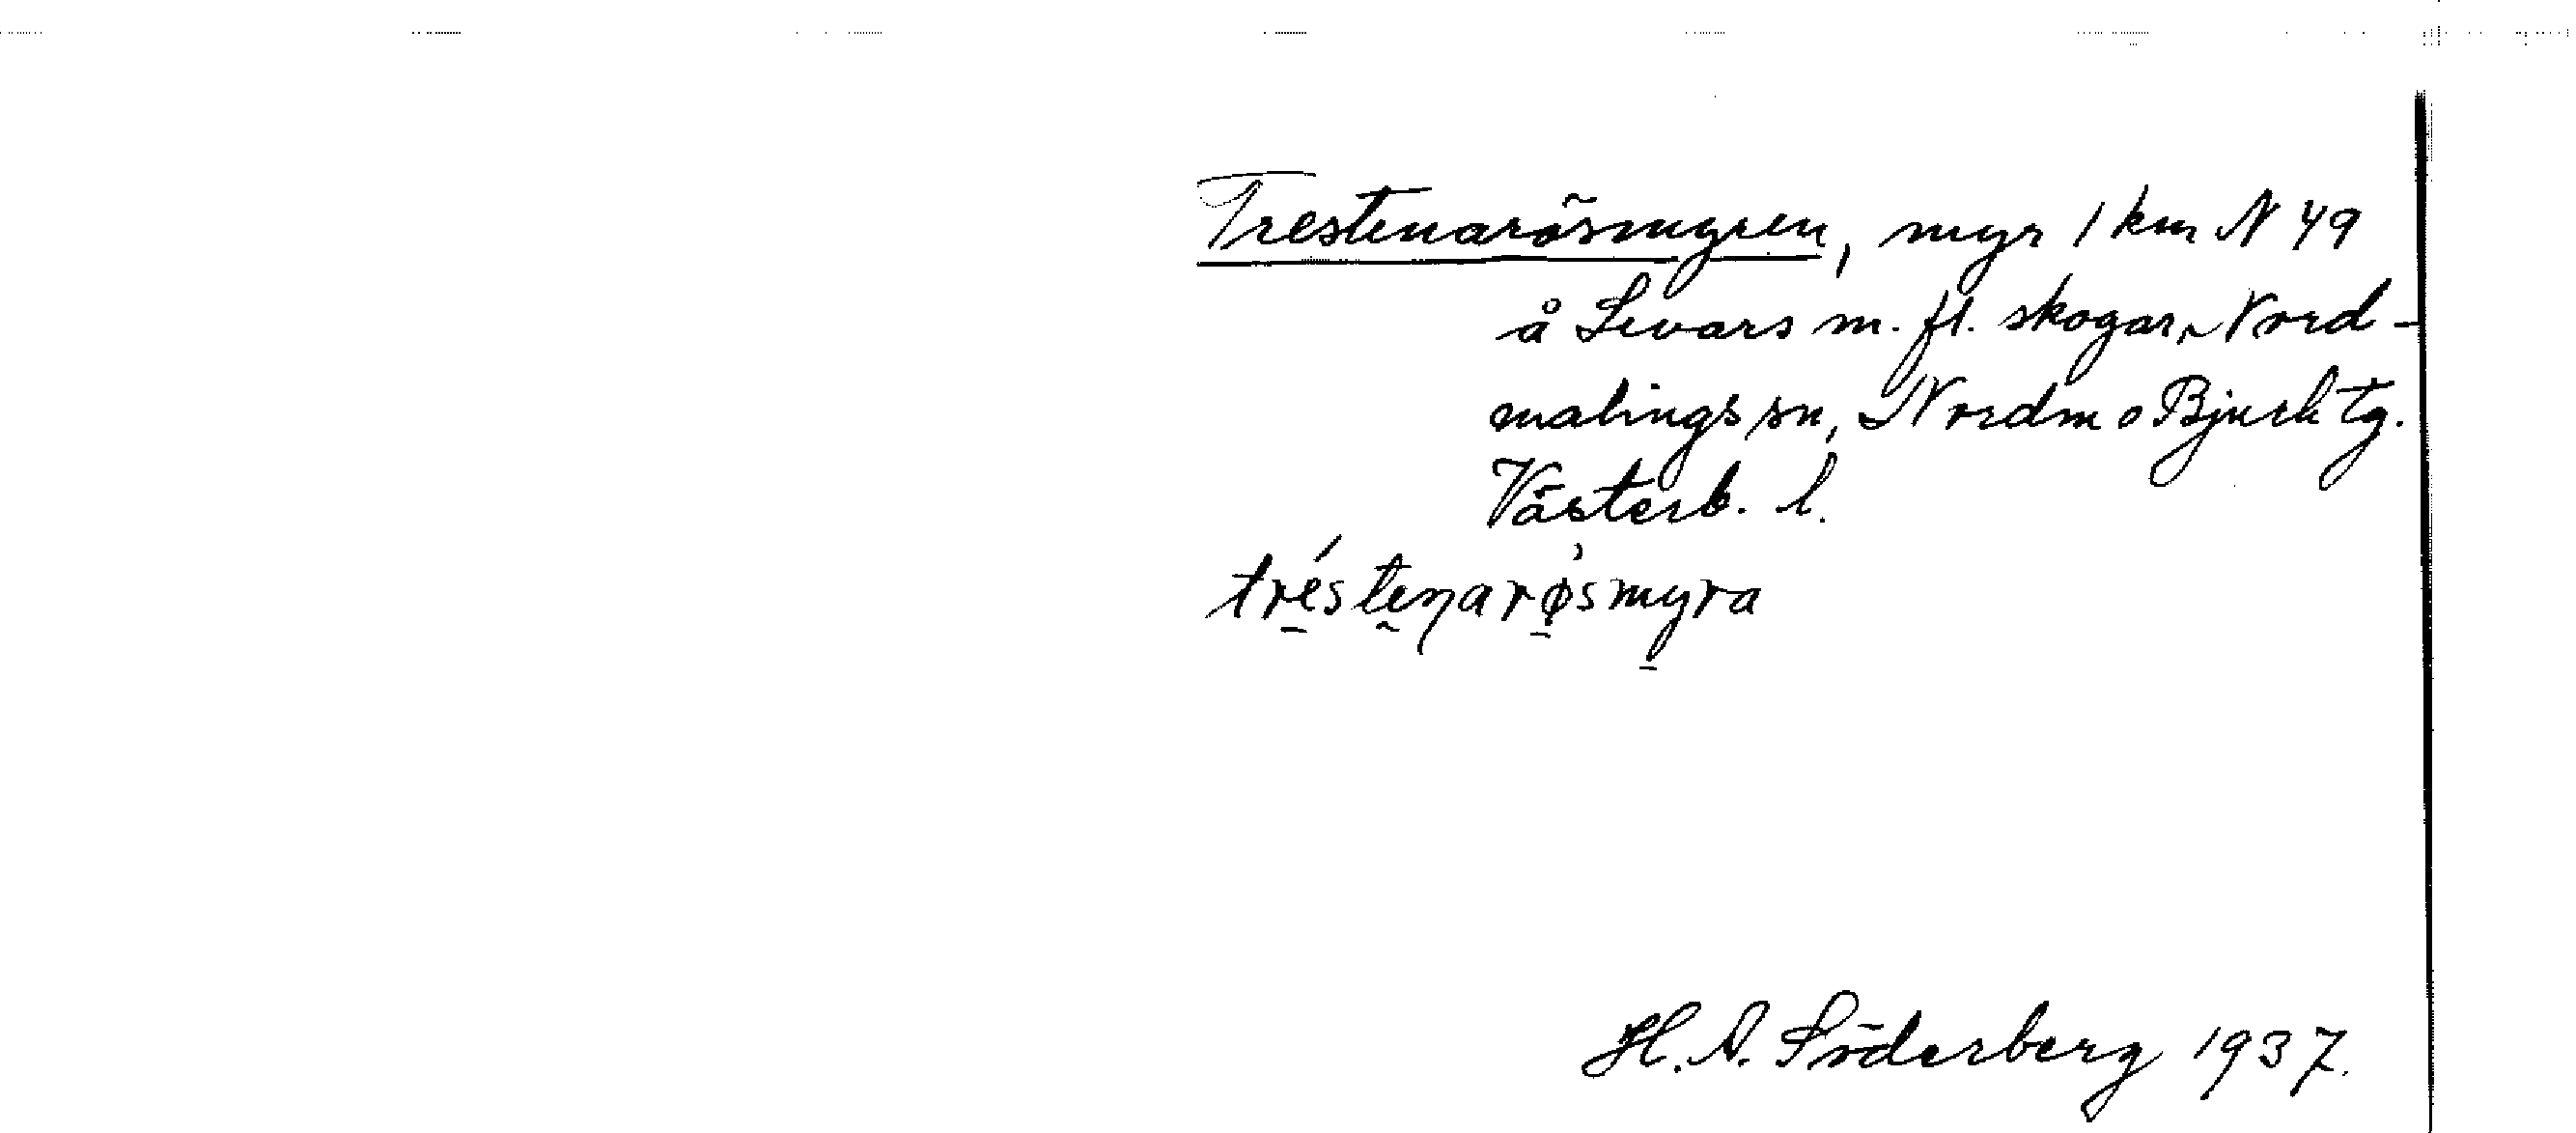 Trestenarösmyren, myr 1 km N 49
å Levars m. fl. skogar, Nord-
malings sn, Nordm o Bjurh tg.
Västerb. l.
tréstenarø̀smyra
H. A. Söderberg 1937.